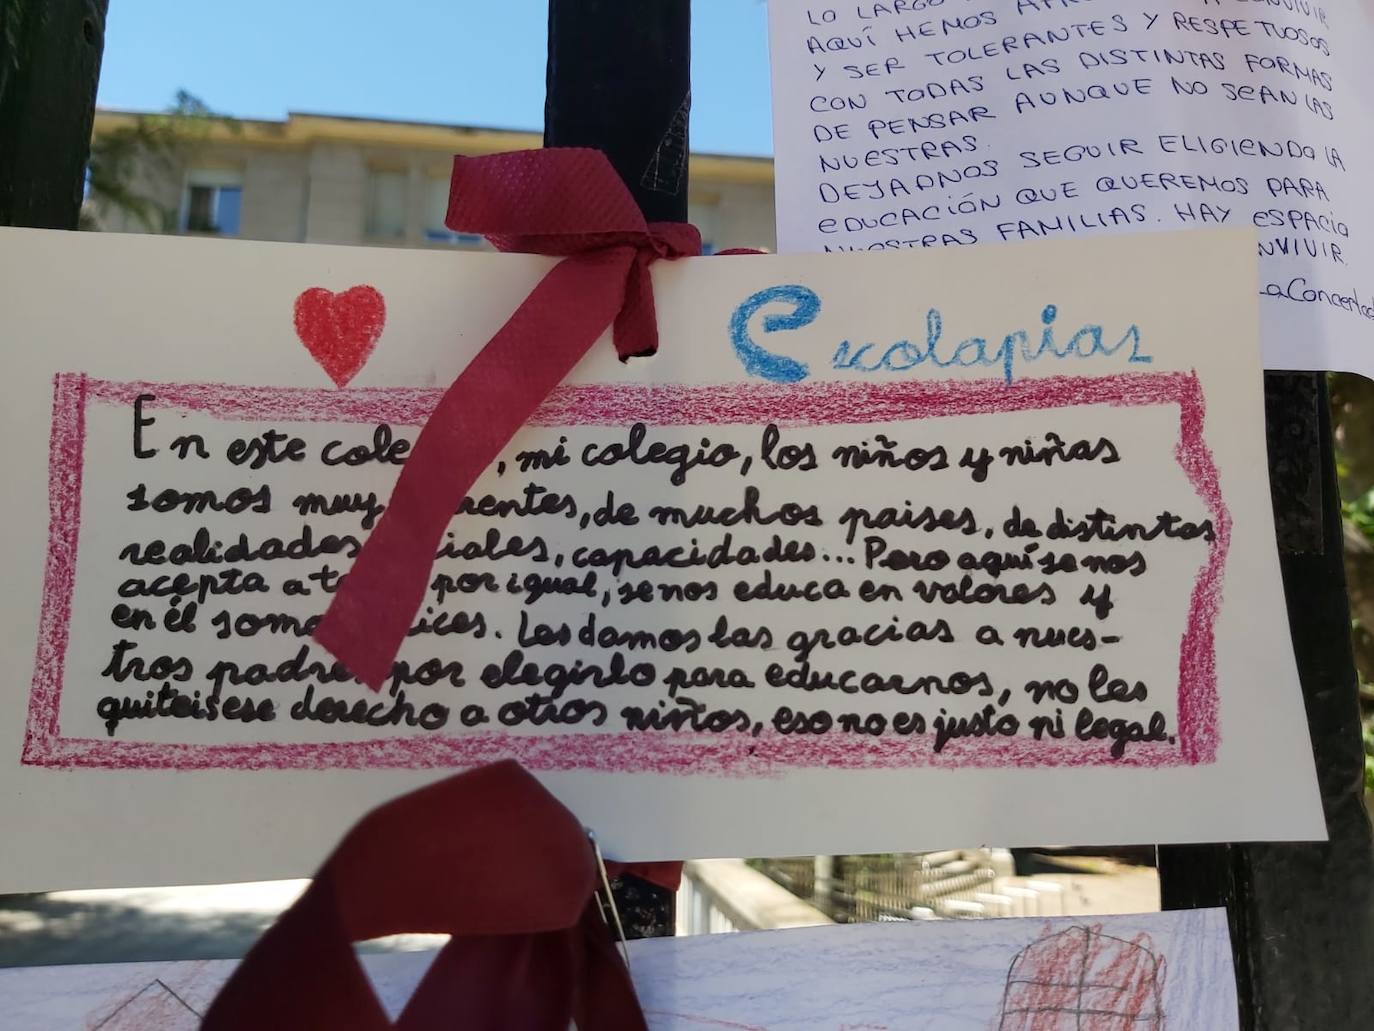 LO LARGO
AQUÍ HEMOS CONVIVIR
Y SER TOLERANTES Y RESPETUOSOS
CON TODAS LAS DISTINTAS FORMAS
DE PENSAR AUNQUE NO SEAN LAS
NUESTRAS.
DEJADNOS SEGUIR ELIGIENDO LA
EDUCACIÓN QUE QUEREMOS PARA
NUESTRAS FAMILIAS. HAY ESPACIO
Escolapias
En este cole , mi colegio, los niños y niñas
somos muy rentes, de muchos paises, de distintas
realidades iales, capacidades... Pero aquí se nos
acepta a t por igual, se nos educa en valores y
en él somo ices. Les damos las gracias a nues-
tros padre por elegirlo para educarnos, no les
quiteis ese derecho a otros niños, eso no es justo ni legal.